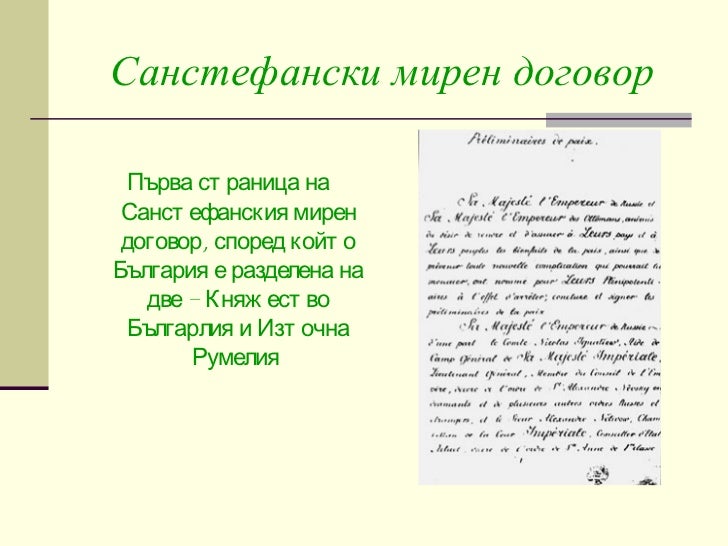 Санстефански мирен договор
Първа ст раница на
Санст ефанския мирен
договор, според койт о
България е разделена на
две – Княж ест во
Българлия и Изт очна
Румелия
Préliminaires de paix.
Sa Majesté l'Empereur de Russie et
Sa Majesté l'Empereur des Ottomans, animés
du désir de rendre et d'assurer à Leurs pays et à
Leurs peuples les bienfaits de la paix, ainsi que de
prévenir toute nouvelle complication qui pourrait la
menacer, ont nommé pour Leurs Plénipotenti-
aires à l'effet d'arrêter, conclure et signer les
préliminaires de la paix
Sa Majesté l'Empereur de Russie
d'une part le Comte Nicolas Ignatiew, Aide de
Camp Général de Sa Majesté Impériale,
Lieutenant Général, Membre du Conseil de l'Em-
décoré de l'ordre de St Alexandre Nevsky en
diamants et de plusieurs autres ordres Russes et
étrangers, et le Sieur Alexandre Nélidow, Cham-
de la Cour Impériale, Conseiller d'Etat
Actuel, décoré de l'ordre de Ste Anne de 1e classe